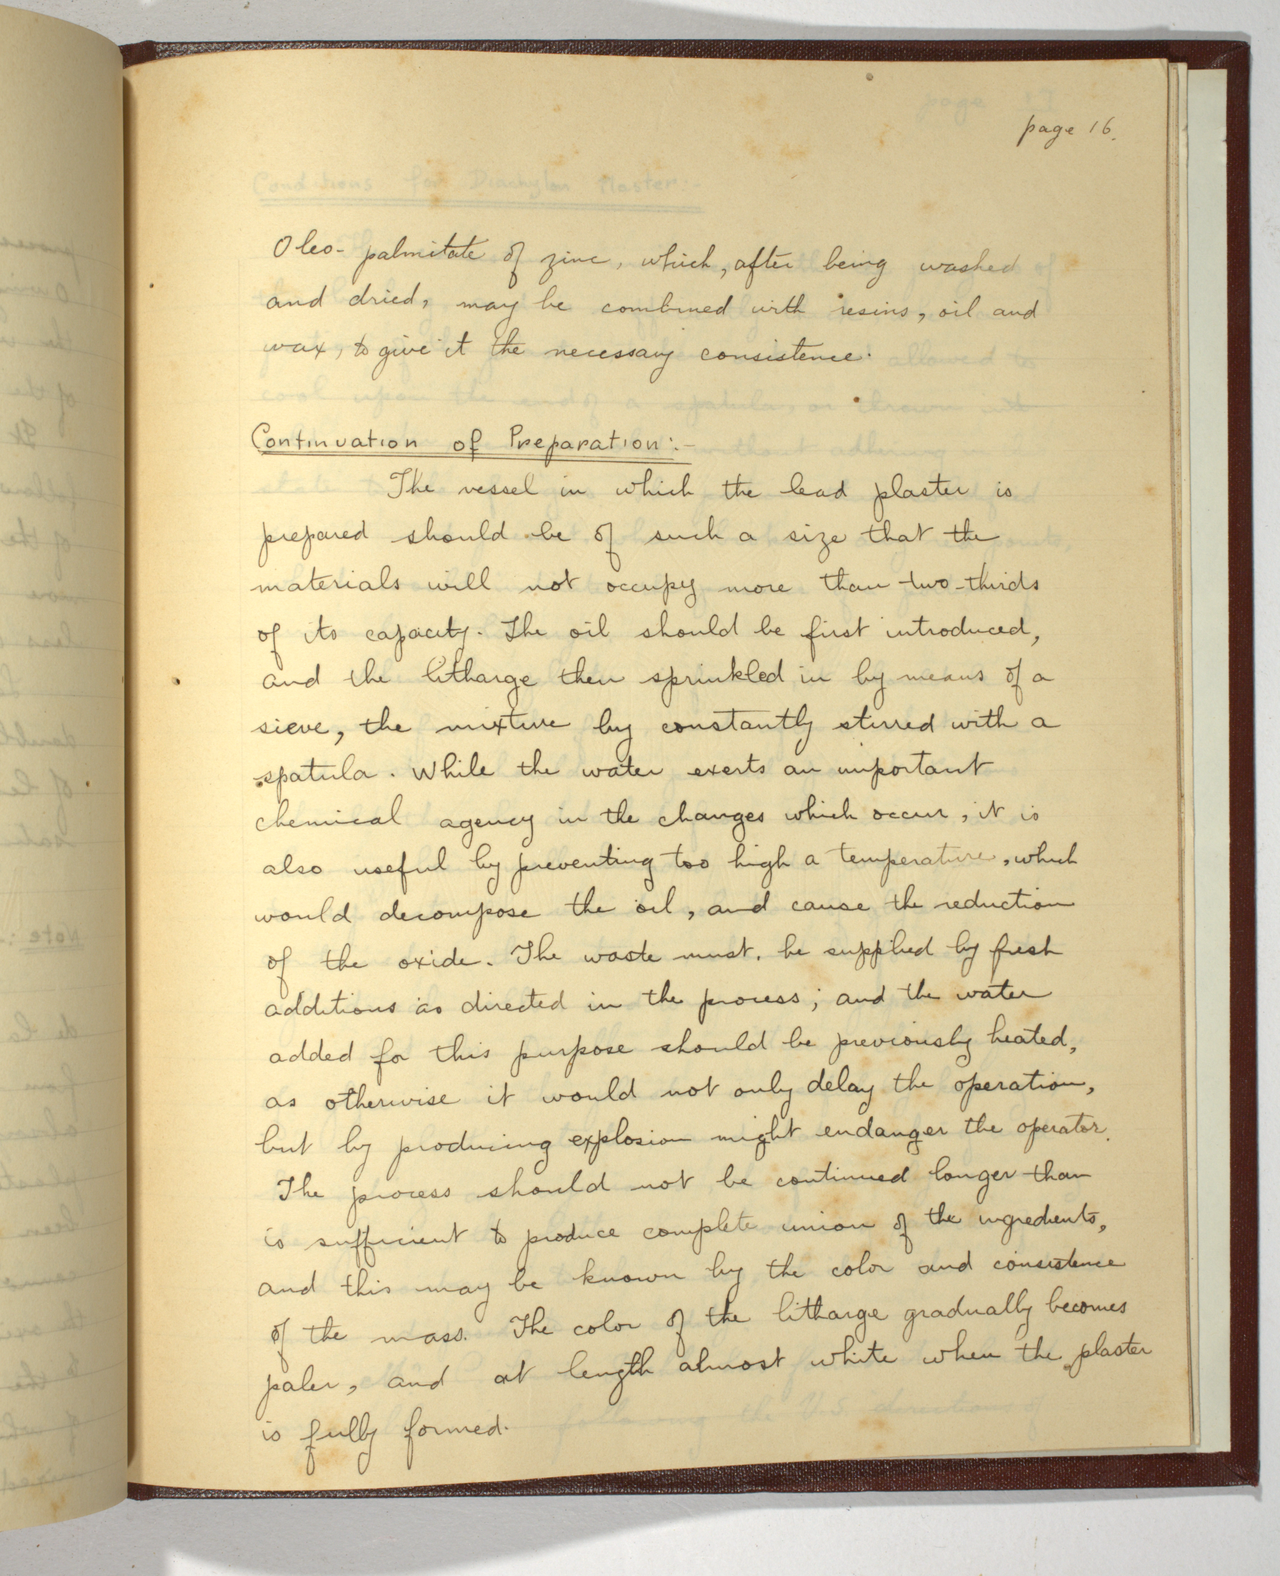 page 16.
Oleo-palmitate of zinc, which, after being washed
and dried, may be combined with resins, oil and
wax, to give it the necessary consistence.
Continuation of Preparation:-
The vessel in which the lead plaster is
prepared should be of such a size that the
materials will not occupy more than two-thirds
of its capacity. The oil should be first introduced,
and the litharge then sprinkled in by means of a
sieve, the mixture by constantly stirred with a
spatula. While the water exerts an important
chemical agency in the changes which occur, it is
also useful by preventing too high a temperature, which
would decompose the oil, and cause the reduction
of the oxide. The waste must. be supplied by fresh
additions as directed in the process; and the water
added for this purpose should be previously heated,
as otherwise it would not only delay the operation,
but by producing explosion might endanger the operator.
The process should not be continued longer than
is sufficient to produce complete union of the ingredients,
and this may be known by the color and consistence
of the mass. The color of the litharge gradually becomes
paler, and at length almost white when the plaster
is fully formed.